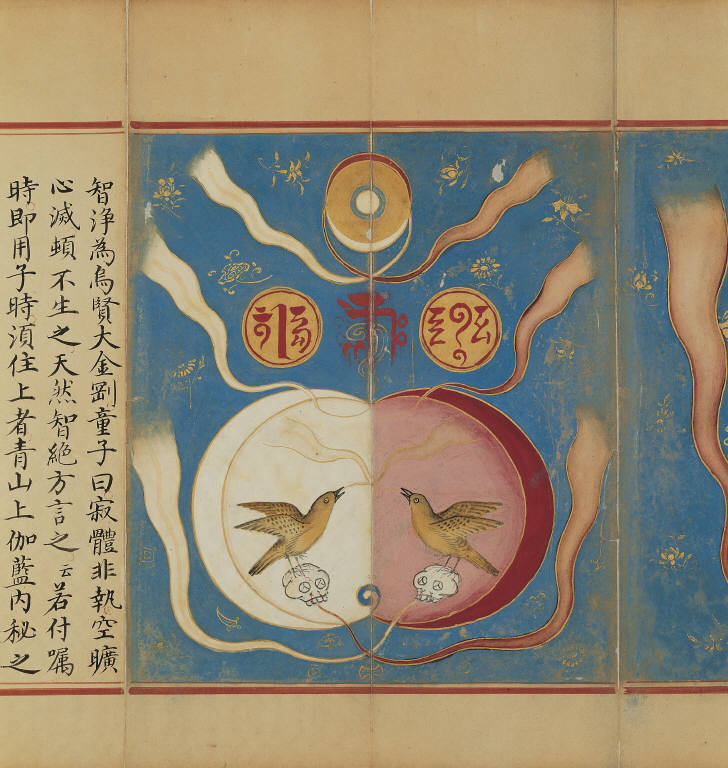 智浄為烏賢大金剛童子曰寂體非執空曠
心滅頓不生之天然智絶方言之云若付嘱
時即用子時湏住上者青山上伽藍内秘之